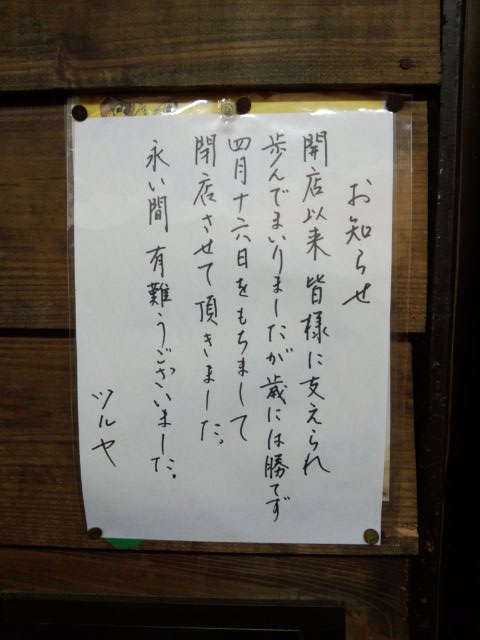 お知らせ
開店以来 皆様に支えられ
歩んでまいりましたが歳には勝てず
四月十六日をもちまして
閉店させて頂きました。
永い間 有難うございました。
ツルヤ